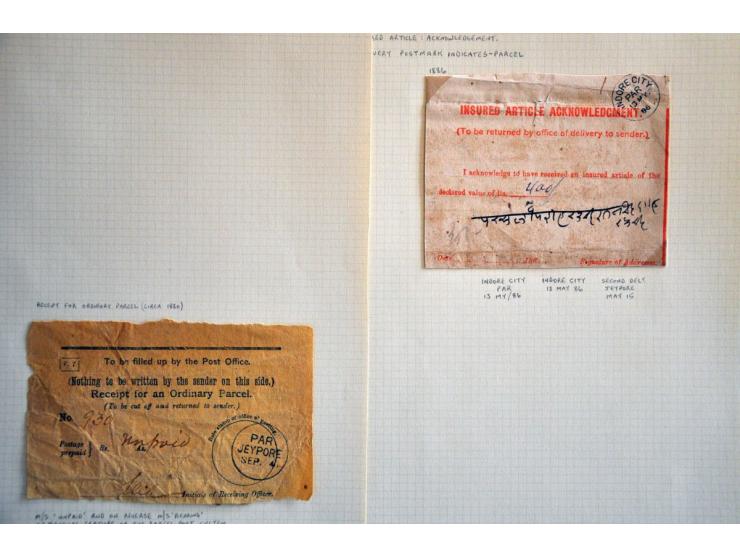 RECEIPT FOR ORDINARY PARCEL (CIRCA 1880)
To be filled up by the Post Office.
(Nothing to be written by the sender on this side.)
Receipt for an Ordinary Parcel.
(To be cut off and returned to sender.)
No. 930
Postage prepaid } Rs. As. unpaid
Date stamp of office of posting.
PAR
JEYPORE
SEP. 4
Initials of Receiving Officer.
M/S 'UNPAID' AND ON REVERSE M/S 'BEARING'
ARTICLE: ACKNOWLEDGEMENT.
POSTMARK INDICATES - PARCEL
1886
INDORE CITY
PAR
INSURED ARTICLE ACKNOWLEDGMENT.
(To be returned by office of delivery to sender.)
I acknowledge to have received an insured article of the
declared value of Rs. 400/
Signature of Addressee.
INDORE CITY INDORE CITY SECOND DELY.
PAR 13 MAY 86 JEYPORE
13 MY/86 MAY 15